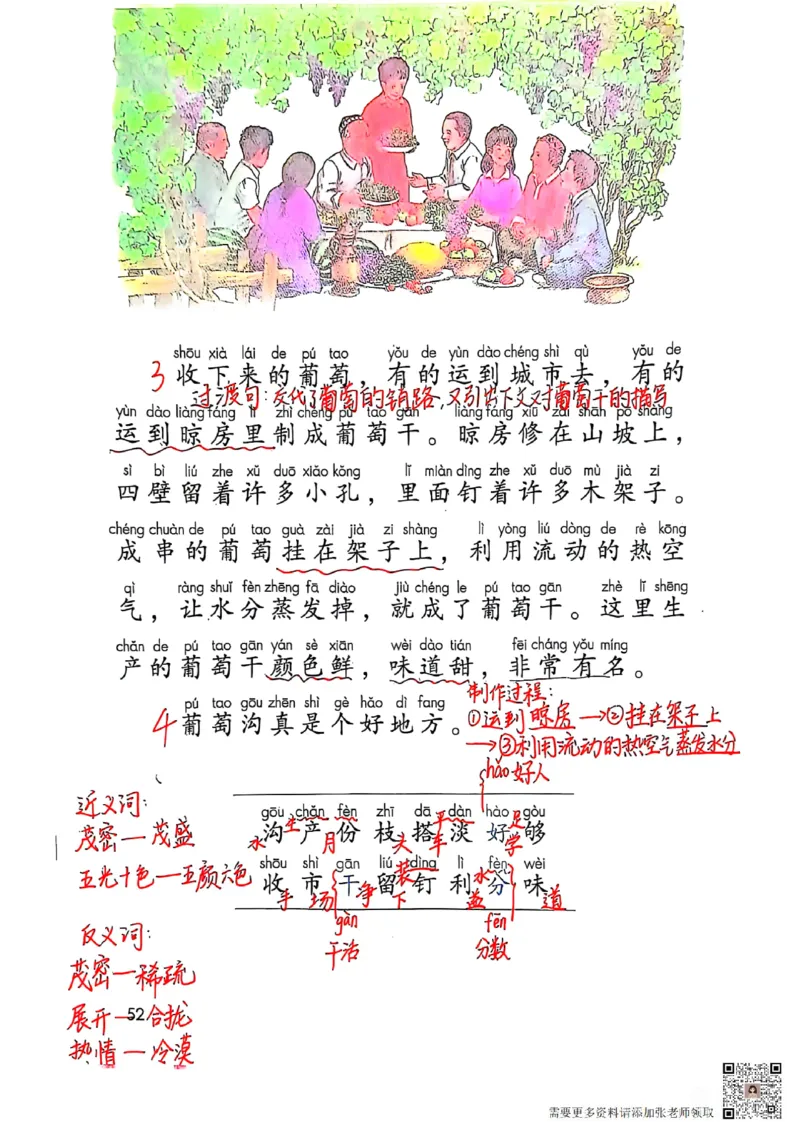 shōu xià lái de pú tao yǒu de yùn dào chéng shì qù yǒu de
3 收下来的葡萄，有的运到城市去，有的
过渡句：交代了葡萄的销路，又引出下文对葡萄干的描写
yùn dào liàng fáng lǐ zhì chéng pú tao gān liàng fáng xiū zài shān pō shàng
运到晾房里制成葡萄干。晾房修在山坡上，
sì bì liú zhe xǔ duō xiǎo kǒng lǐ miàn dìng zhe xǔ duō mù jià zi
四壁留着许多小孔，里面钉着许多木架子。
chéng chuàn de pú tao guà zài jià zi shàng lì yòng liú dòng de rè kōng
成串的葡萄挂在架子上，利用流动的热空
qì ràng shuǐ fèn zhēng fā diào jiù chéng le pú tao gān zhè lǐ shēng
气，让水分蒸发掉，就成了葡萄干。这里生
chǎn de pú tao gān yán sè xiān wèi dào tián fēi cháng yǒu míng
产的葡萄干颜色鲜，味道甜，非常有名。
制作过程：
pú tao gōu zhēn shì gè hǎo dì fang
4 葡萄沟真是个好地方。
①运到晾房→②挂在架子上
→③利用流动的热空气蒸发水分
hǎo 好人
近义词：
茂密—茂盛
五光十色—五颜六色
gōu chǎn fèn zhī dā dàn hào gòu
沟产份枝搭淡好够
水 生 月 大 平 车 足 学
shōu shì gān liú dìng lì fèn wèi
收市干留钉利分味
手 场 净 下 装 益 水 道
gàn fēn
干活 分数
反义词：
茂密—稀疏
展开—合拢
52
热情—冷漠
需要更多资料请添加张老师领取